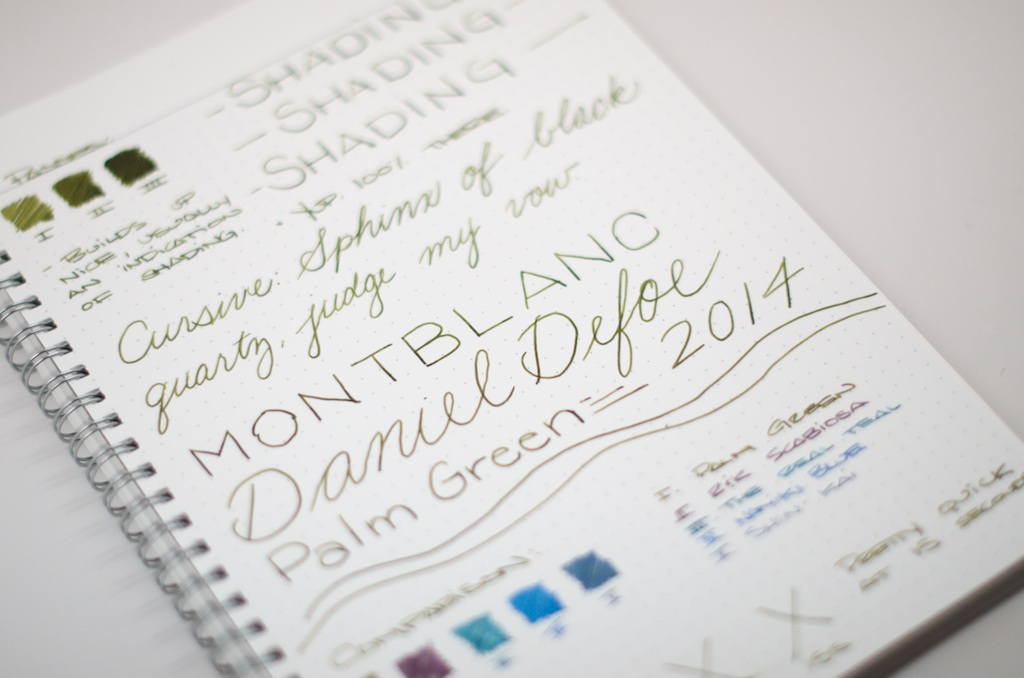 - SHADING
- SHADING
- SHADING
Passes
I II III
- BUILDS UP
NICE, USUALLY
AN INDICATION
OF SHADING.
100% THERE
Cursive: Sphinx of black
quartz, judge my vow.
MONTBLANC
Daniel Defoe
Palm Green = 2014
I PALM GREEN
I R&K SCABIOSA
I THE REAL TEAL
I BLUE
I SHIN-KAI
COMPARISON:
PRETTY QUICK
AT 10 SECONDS